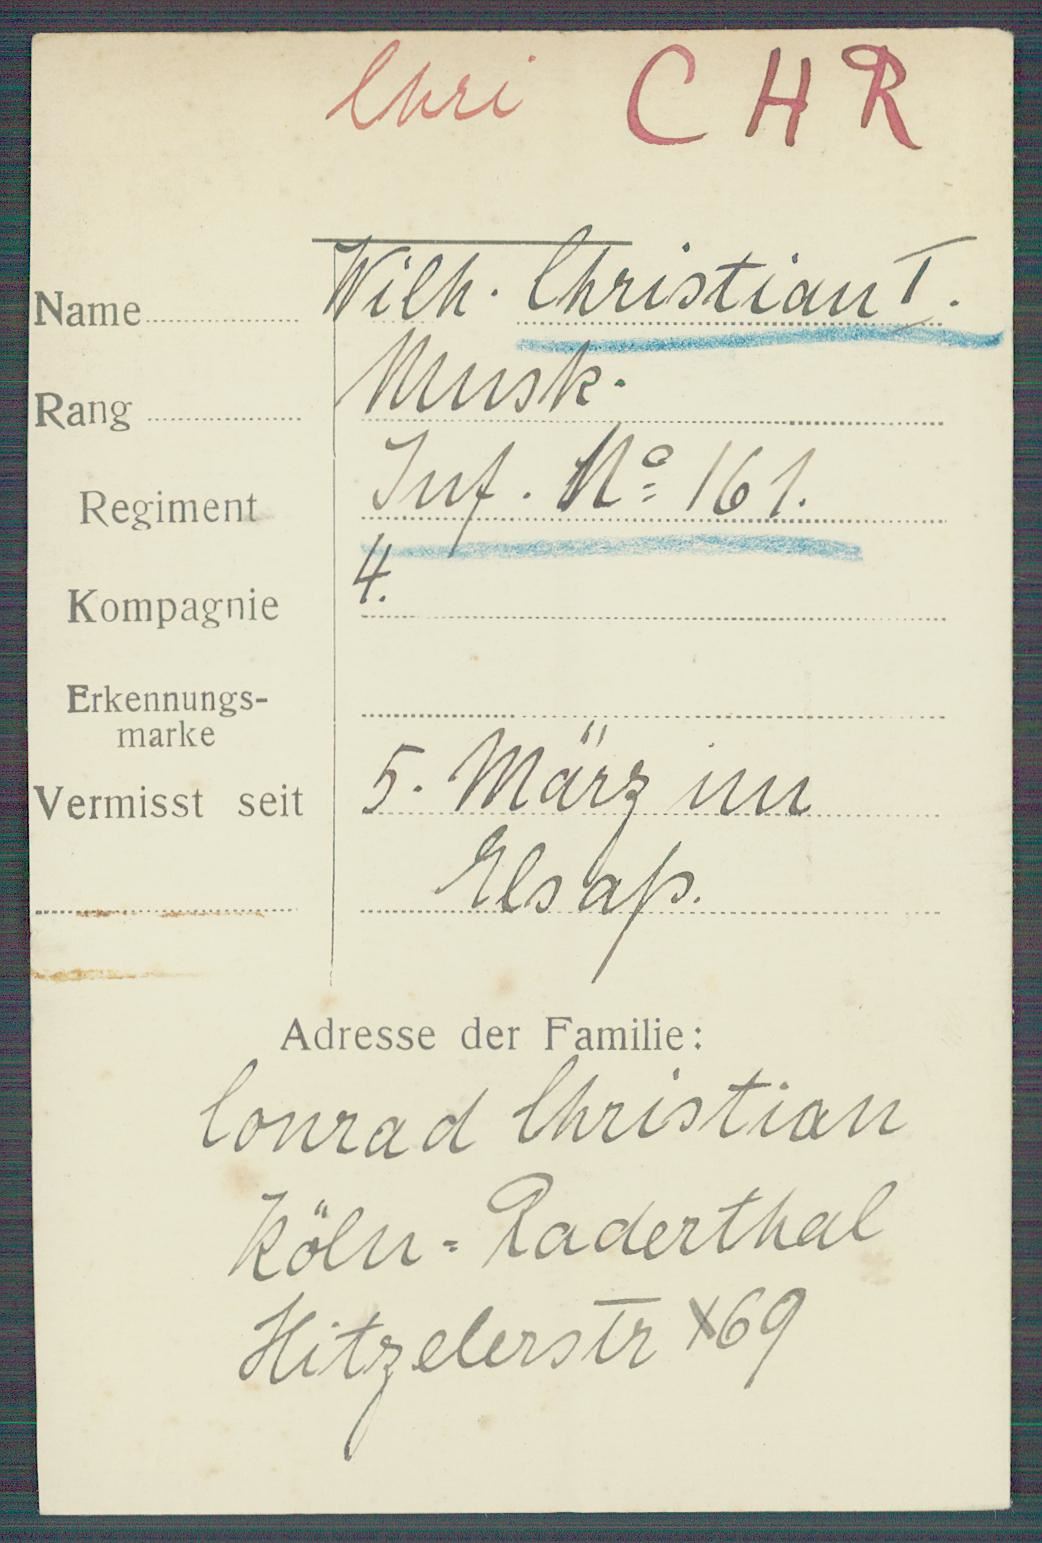 Chri CHR
Name Wilh. Christian I.
Rang Musk.
Regiment Inf. No 161.
Kompagnie 4.
Erkennungs-
marke
Vermisst seit 5. März im
Elsaß.
Adresse der Familie:
Conrad Christian
Köln-Raderthal
Hitzelerstr 69